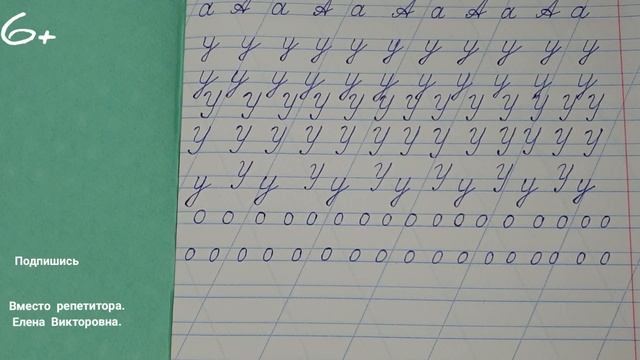 6+
а А а А а А а А а А а
у у у у у у у у у у у
у у у у у у у у у у у
У У У У У У У У У У У У У
У У У У У У У У У У У У У
у У у У у У у У у У у У у
о о о о о о о о о о о о о о о о о
о о о о о о о о о о о о о о о о о о
Подпишись
Вместо репетитора.
Елена Викторовна.